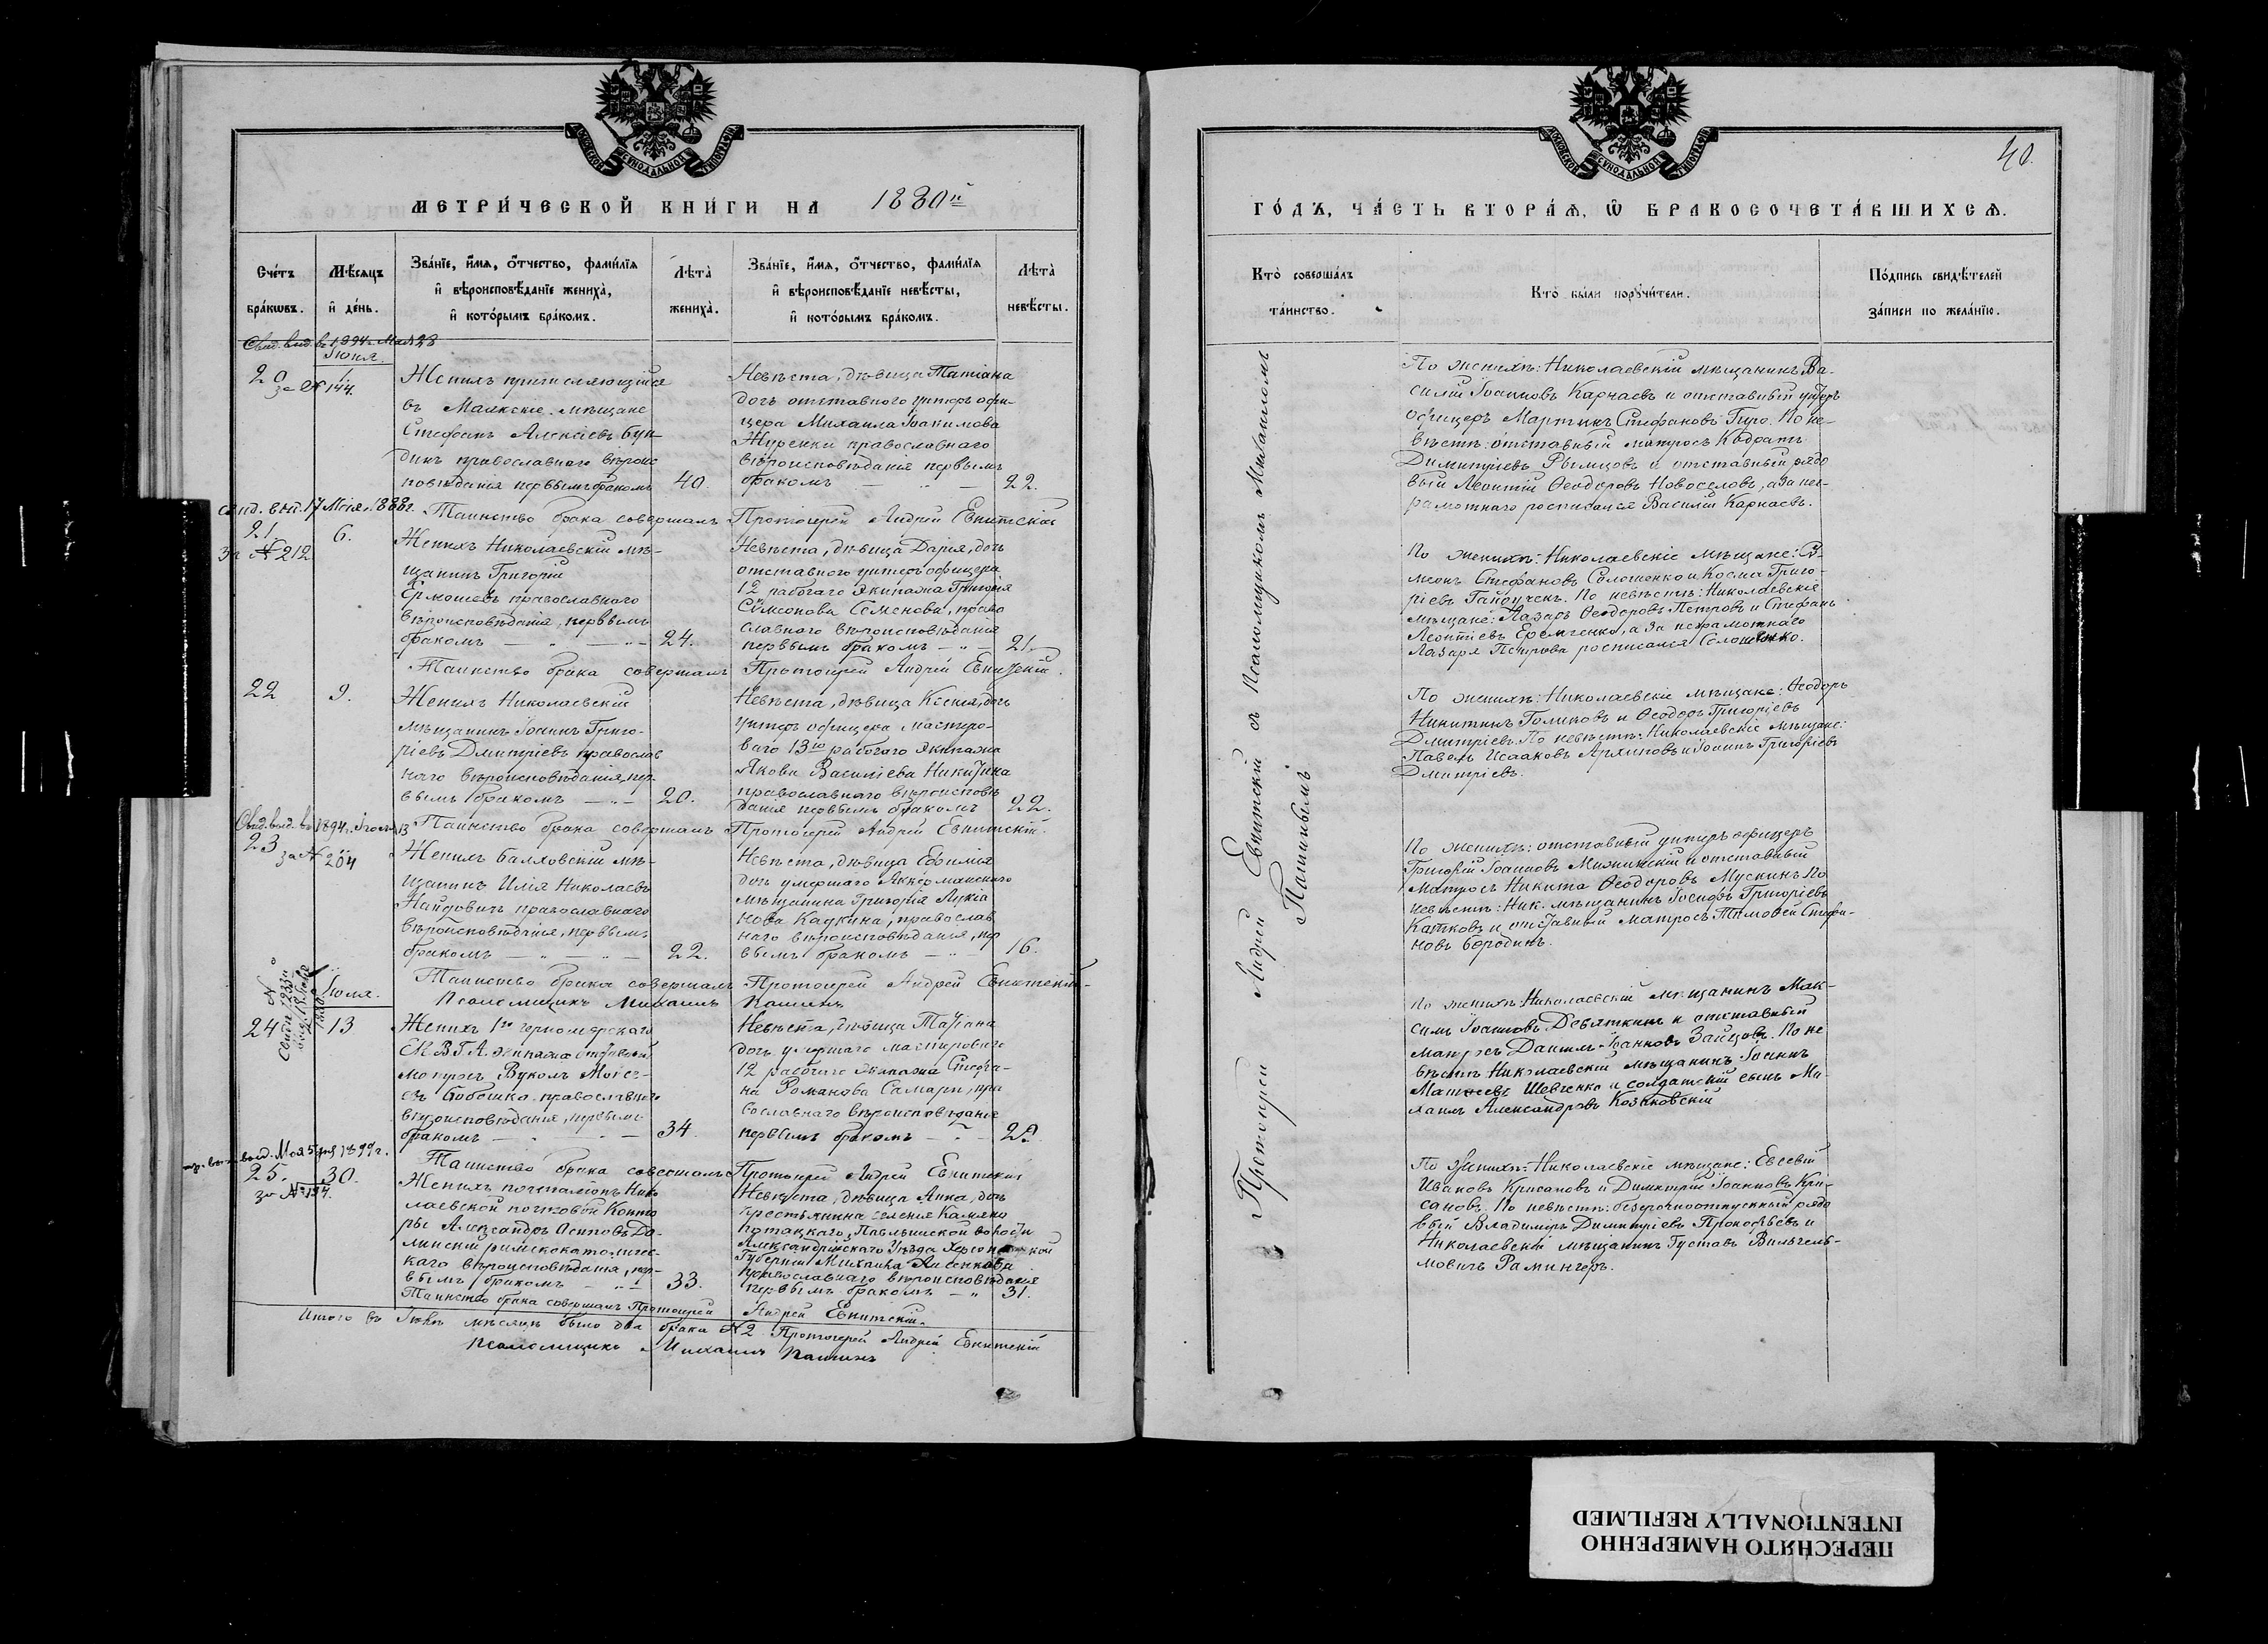 МЕТРИ́ЧЕСКОЙ КНИ́ГИ НА 1880й
Сче́тъ бра́кѡвъ.
Мѣ́сяцъ и҆ де́нь.
Зва́нїе, и҆́мѧ, ѻ҆́тчество, фами́лїѧ
и҆ вѣроисповѣ́данїе жениха̀,
и҆ кото́рымъ бра́комъ.
Лѣта̀ жениха̀.
Зва́нїе, и҆́мѧ, ѻ҆́тчество, фами́лїѧ
и҆ вѣроисповѣ́данїе невѣ́сты,
и҆ кото́рымъ бра́комъ.
Лѣта̀ невѣ́сты.
Свид. выд. въ 1894 г. Мая 28
за № 144.
Іюня.
20
1
Женихъ причисляющійся
въ Маякскіе мѣщане
Стефанъ Алексіевъ Бун-
динъ православнаго вѣроис
повѣданія первымъ бракомъ
40.
Невѣста, дѣвица Татіана
дочь отставного унтеръ офи-
цера Михаила Іоакимова
Журенки православнаго
вѣроисповѣданія первымъ
бракомъ
22.
Таинство брака совершалъ Протоіерей Андрей Евнитскій
свид. выд. 17 Мая 1888 г.
за № 212
21
6.
Женихъ Николаевскій мѣ-
щанинъ Григорій
Ермошевъ православнаго
вѣроисповѣданія, первымъ
бракомъ
24.
Невѣста, дѣвица Дарія, дочь
отставного унтеръ офицера
12 рабочаго экипажа Григорія
Симеонова Семенова, право
славнаго вѣроисповѣданія
первымъ бракомъ
21.
Таинство брака совершалъ Протоіерей Андрей Евнитскій.
22
9.
Женихъ Николаевскій
мѣщанинъ Іоаннъ Григо-
ріевъ Дмитріевъ православ
наго вѣроисповѣданія, пер-
вымъ бракомъ
20.
Невѣста, дѣвица Ксенія, дочь
унтеръ офицера мастеро-
ваго 13го рабочаго экипажа
Якова Василіева Никитина
православнаго вѣроисповѣ
данія первымъ бракомъ
22.
Таинство брака совершалъ Протоіерей Андрей Евнитскій.
Свид. выд. въ 1894 г. 13
за № 204
23
Женихъ Балховскій мѣ-
щанинъ Илія Николаевъ
Найдовичъ православнаго
вѣроисповѣданія, первымъ
бракомъ
22.
Невѣста, дѣвица Евфимія
дочь умершаго Аккерманскаго
мѣщанина Григорія Лукіа
нова Кадкина, православ
наго вѣроисповѣданія, пер
вымъ бракомъ
16.
Таинство брака совершалъ Протоіерей Андрей Евнитскій
Псаломщикъ Михаилъ Пашинъ
Іюля.
24
13
Женихъ 1го черноморскаго
Е.И.В.Г.А. экипажа отставной
матросъ Вуколъ Моісе-
евъ Бобошко православнаго
вѣроисповѣданія, первымъ
бракомъ
34.
Невѣста, дѣвица Татіана
дочь умершаго мастероваго
12 рабочаго экипажа Стефа-
на Романова Самари, пра
вославнаго вѣроисповѣданія
первымъ бракомъ
Таинство брака совершалъ Протоіерей Андрей Евнитскій
выд. Мая 5 дня 1899 г.
за № 194.
25.
30.
Женихъ почталіонъ Нико
лаевской почтовой Конто
ры Александръ Осиповъ До-
линскій римскокатоличес-
каго вѣроисповѣданія, пер-
вымъ бракомъ
33.
Невѣста, дѣвица Анна, дочь
крестьянина селенія Камяно
потацкаго, Павлышской волости
Александрійскаго Уѣзда Херсонской
Губерніи Михаила
православнаго вѣроисповѣданія
первымъ бракомъ
31.
Таинство брака совершалъ Протоіерей Андрей Евнитскій.
Итого въ Іюлѣ мѣсяцѣ было два брака № 2 Протоіерей Андрей Евнитскій
Псаломщикъ Михаилъ Пашинъ
40.
ГО́ДЪ, ЧА́СТЬ ВТОРА́Ѧ, Ѿ БРАКОСОЧЕТА́ВШИХСѦ.
Кто̀ соверша́лъ
та́инство.
Кто̀ бы́ли поручи́тели.
По́дпись свидѣ́телей
за́писи по жела́нїю.
Протоіерей Андрей Евнитскій съ Псаломщикомъ Михаиломъ
Пашинымъ
По женихѣ: Николаевскій мѣщанинъ Ва-
силій Іоанновъ Карнаевъ и отставный унтеръ
офицеръ Мартинъ Стефановъ Гиро. По не-
вѣстѣ: отставный матросъ Кодратъ
Димитріевъ Рымцовъ и отставный рядо
вый Леонтій Ѳеодоровъ Новоселовъ, а за нег-
рамотнаго росписался Василій Карнаевъ.
По женихѣ: Николаевскіе мѣщане: Си-
меонъ Стефановъ Солошенко и Косма Григо-
ріевъ Гайдученъ. По невѣстѣ: Николаевскіе
мѣщане: Лазарь Ѳеодоровъ Петровъ и Стефанъ
Леонтіевъ Еремченко, а за неграмотнаго
Лазаря Петрова росписался Солошенко.
По женихѣ: Николаевскіе мѣщане: Ѳеодоръ
Никитинъ Голиковъ и Ѳеодоръ Григоріевъ
Дмитріевъ. По невѣстѣ: Николаевскіе мѣщане:
Павелъ Исааковъ Архиповъ и Іоаннъ Григоріевъ
Дмитріевъ.
По женихѣ: отставный унтеръ офицеръ
Григорій Іоанновъ Мижинскій и отставный
матросъ Никита Ѳеодоровъ Мускинъ. По
невѣстѣ: Ник. мѣщанинъ Іосифъ Григоріевъ
Катковъ и отставный матросъ Тимоѳей Стефа-
новъ Бородинъ.
По женихѣ: Николаевскій мѣщанинъ Мак-
симъ Іоанновъ Девяткинъ и отставный
матросъ Даніилъ Іоанновъ Зайцовъ. По не
вѣстѣ Николаевскій мѣщанинъ Іоаннъ
Матѳеевъ Шевченко и солдатскій сынъ Ми-
хаилъ Александровъ Козаковскій
По женихѣ: Николаевскіе мѣщане: Евсевій
Ивановъ Крисановъ и Димитрій Іоанновъ Кри-
сановъ. По невѣстѣ: безсрочноотпускный рядо
вый Владиміръ Димитріевъ Прокофьевъ и
Николаевскій мѣщанинъ Густавъ Вильгель-
мовичъ Рамингеръ.
ПЕРЕСНЯТО НАМЕРЕННО
INTENTIONALLY REFILMED